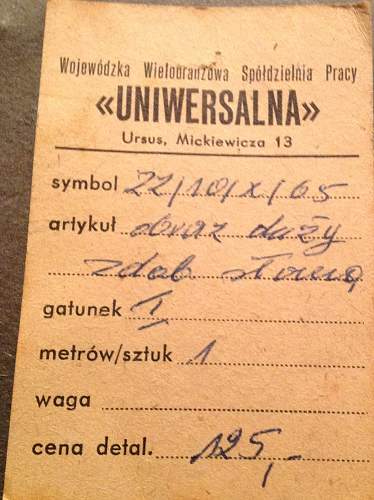 Wojewódzka Wielobranżowa Spółdzielnia Pracy
«UNIWERSALNA»
Ursus, Mickiewicza 13
symbol 22/10/X/65
artykuł obraz duży
zdob słomą
gatunek I
metrów/sztuk 1
waga
cena detal. 125,-